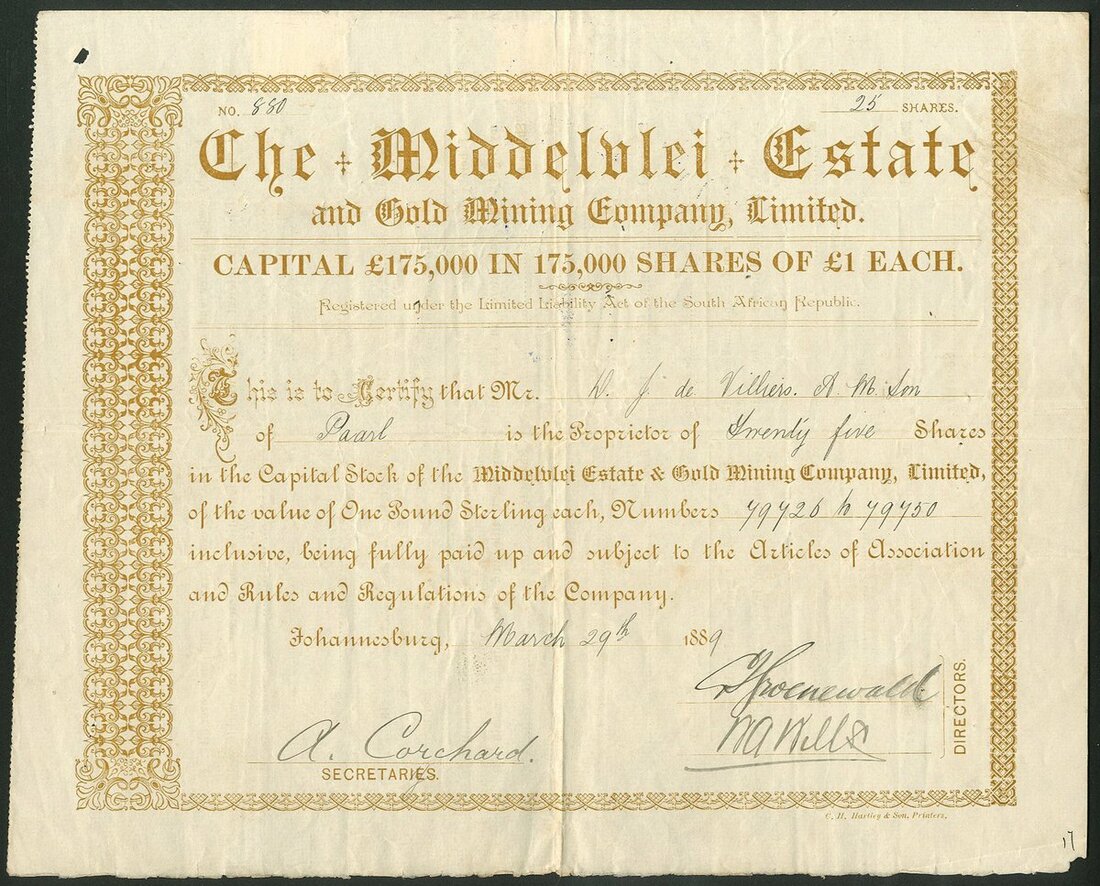 NO. 880 25 SHARES.
The Middelvlei Estate
and Gold Mining Company, Limited.
CAPITAL £175,000 IN 175,000 SHARES OF £1 EACH.
Registered under the Limited Liability Act of the South African Republic.
This is to Certify that Mr. D. J. de Villiers. A M Son
of Paarl is the Proprietor of Twenty five Shares
in the Capital Stock of the Middelvlei Estate & Gold Mining Company, Limited,
of the value of One Pound Sterling each, Numbers 79726 to 79750
inclusive, being fully paid up and subject to the Articles of Association
and Rules and Regulations of the Company.
Johannesburg, March 29th 1889
Groenewald
W A Wills
DIRECTORS.
A. Corchard.
SECRETARIES.
C. H. Hartley & Son, Printers,
17